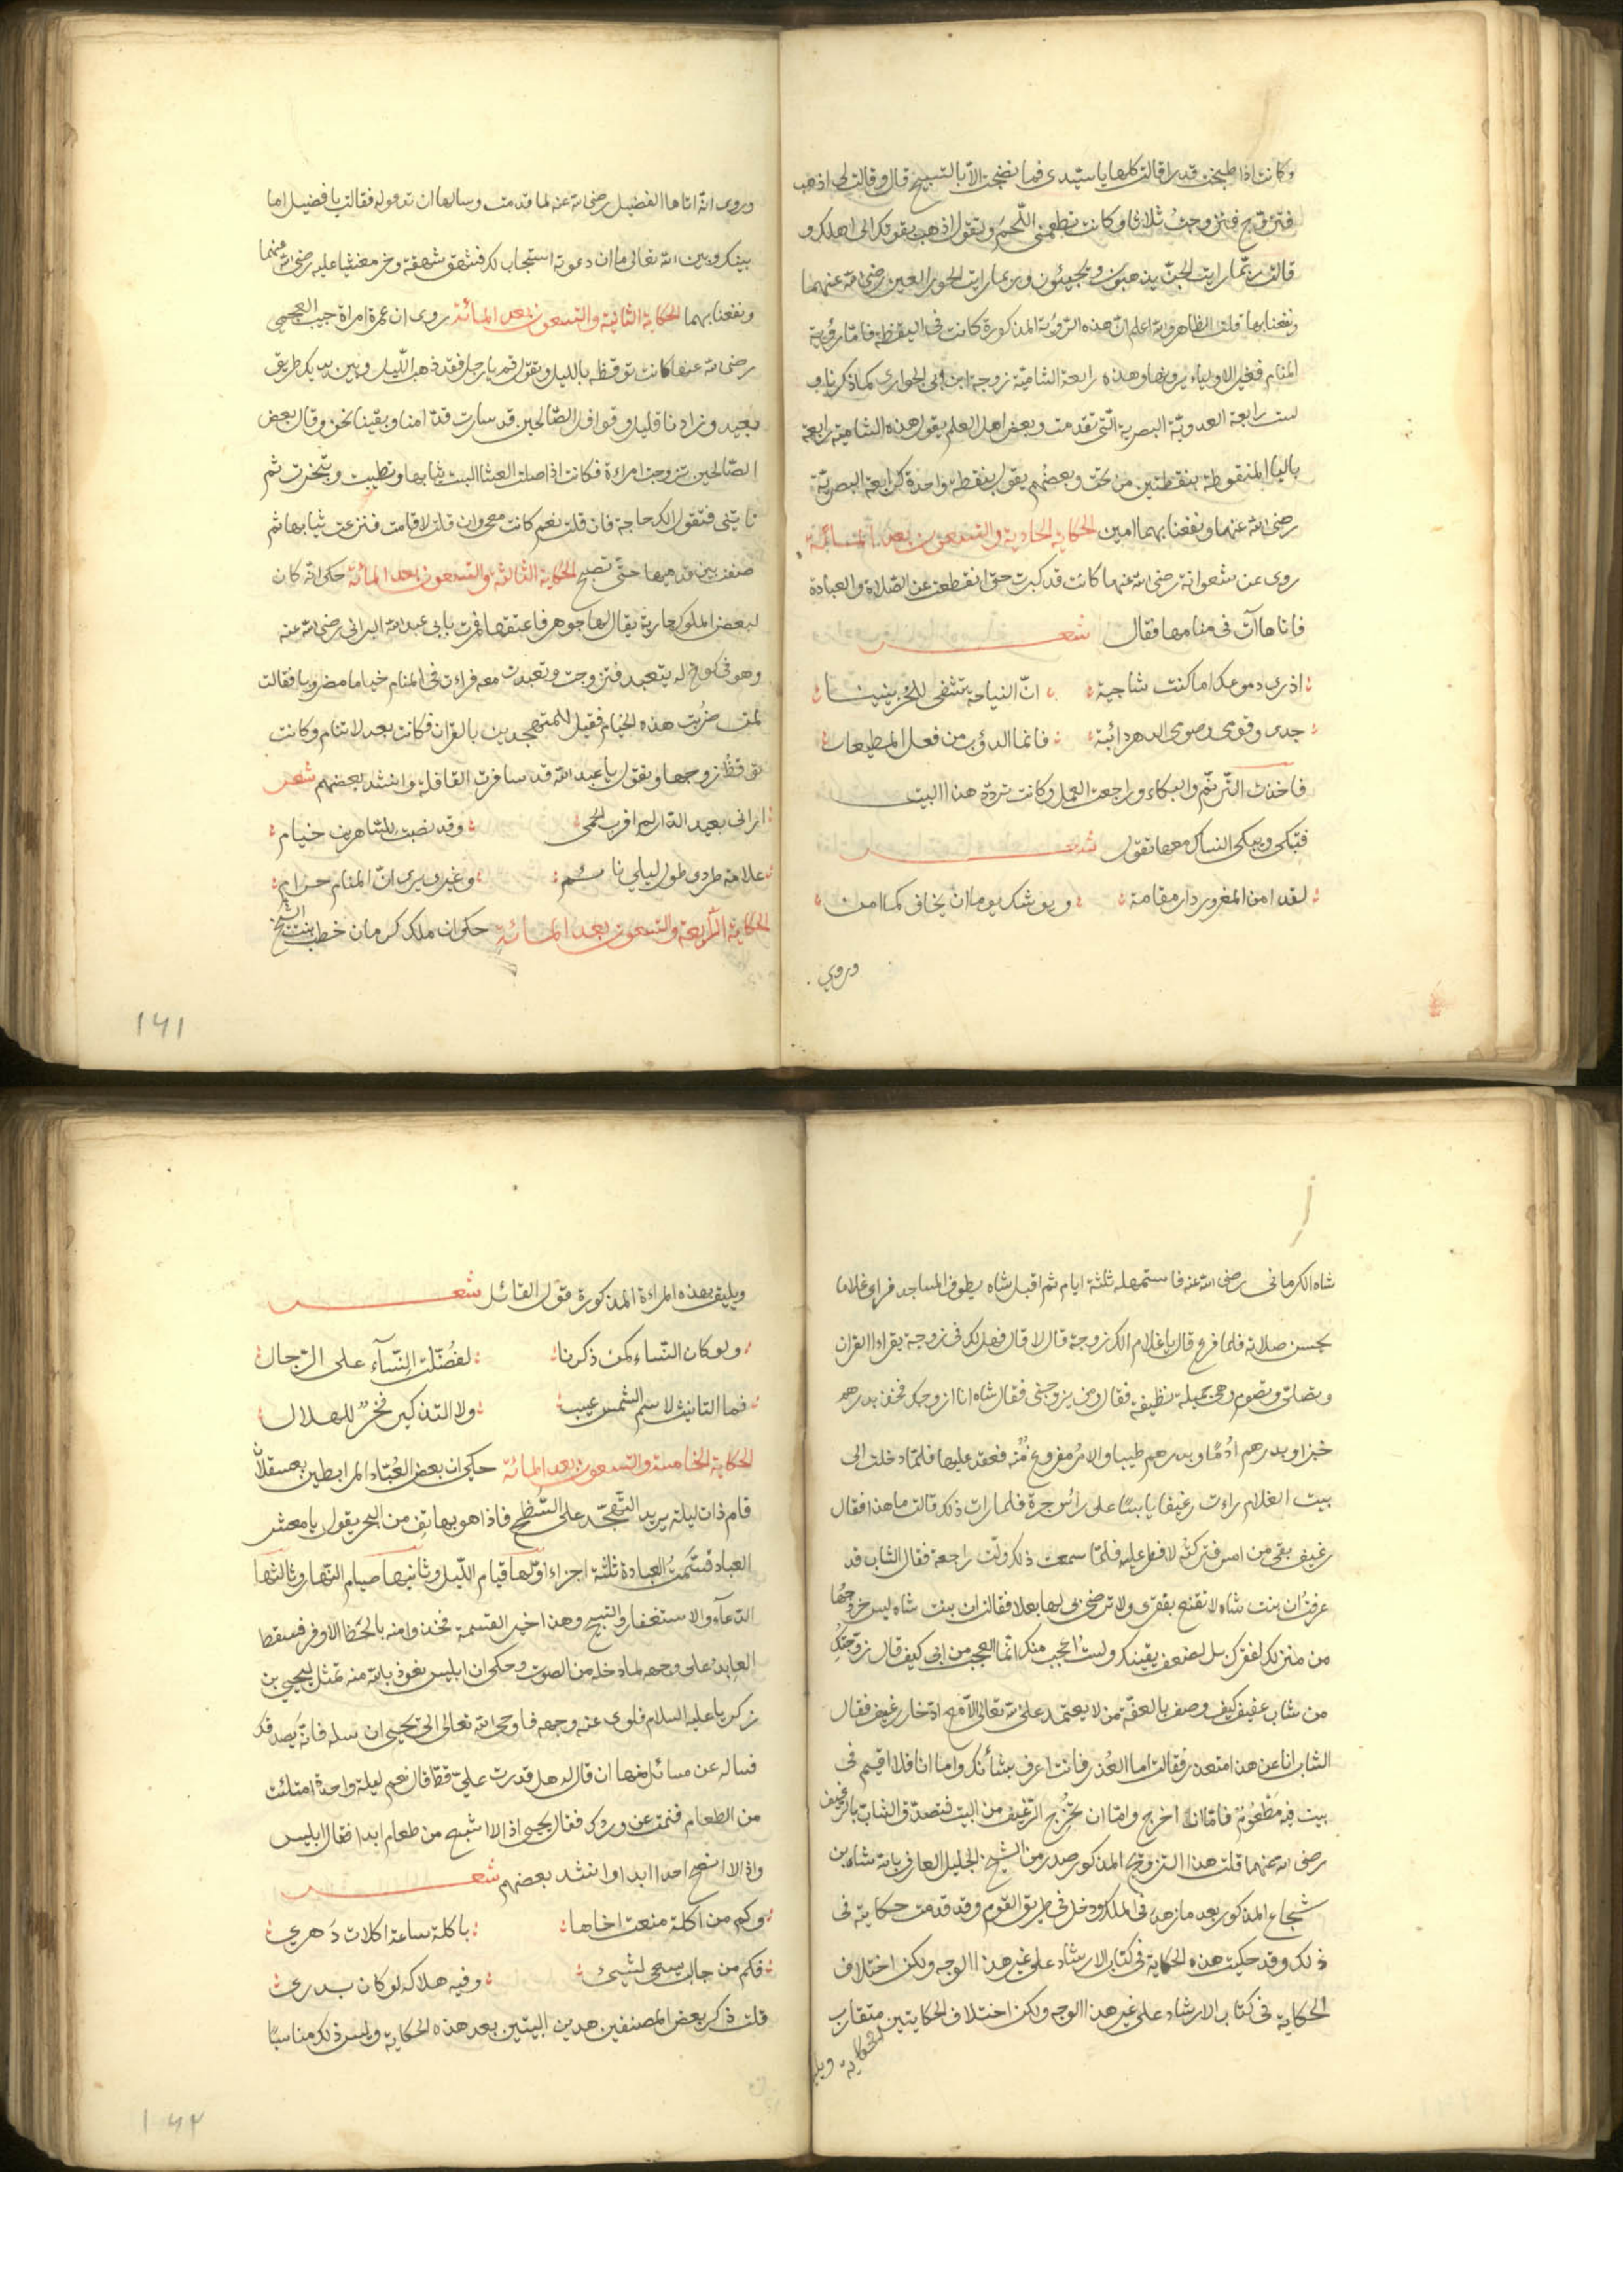 وكانت اذا طبخت قدرا قالت كلها يا سيدى فما نضجت الا بالتسبيح قال وقالت لى اذهب
فتزوج فتزوجتُ ثلاثا وكانت تطعمنى اللّحم وتقول اذهب بقوتك الى اهلك و
قالت ربّما رايت الجنّ يذهبون ويجيئون وربما رايت الحور العين رضى الله عنهما
ونفعنا بها قلت الظاهر والله اعلم ان هذه الرؤية المذكورة كانت فى اليقظة فاما رؤية
المنام فغير الاولياء يرونها وهذه رابعة الشامية زوجة ابن ابى الحوارى كما ذكرنا و
ليست رابعة العدوية البصرية التى تقدمت وبعض اهل العلم يقول هذه الشامية رايعة
باليا المنقوطة بنقطتين من تحت وبعضهم يقول بنقطة واحدة كرابعة البصرية
رضى الله عنهما ونفعنا بهما امين الحكاية الحادية والتسعون بعد المائة
روى عن شعوانة رضى الله عنها كانت قد كبرت حتى انقطعت عن الصلاة والعبادة
فاتاها آت فى منامها فقال شعر
اذرى دموعك اما كنت شاجية ان النياحة تشفى للحزينينا
جدى وقومى وصومى الدهر دائبة فانما الدؤب من فعل المطيعات
فاخذت الترنّم والبكاء وراجعت العمل وكانت تردد هذا البيت
فتبكى ويبكى النساك معها تقول شعر
لقد امن المغرور دار مقامة ويوشك يوما ان يخاف كما امن
وروي
وروى انه اتاها الفضيل رضى الله عنه لما قدمت وسالها ان تدعوله فقالت يا فضيل اما
بينك وبين الله تعالى ما ان دعوته استجاب لك فشهق شهقة وخر مغشيا عليه رضى الله عنهما
ونفعنا بهما الحكاية الثانية والتسعون بعد المائة روى ان عمرة امراة حبيب العجمى
رضى الله عنها كانت توقظه بالليل وتقول قم يا رجل فقد ذهب اللّيل وبين يديك طريق
بعيد وزادنا قليل وقوافل الصالحين قد سارت قدّامنا وبقينا نحن وقال بعض
الصّالحين تزوجت امراءة فكانت اذا صلت العشا البست ثيابها وتطيبت وتبخرت ثم
تاتينى فتقول الك حاجة فان قلت نعم كانت معى وان قلت لا قامت فنزعت ثيابها ثم
صفت بين قدميها حتّى تصبح الحكاية الثالثة والتسعون بعد المائة حكى انه كان
لبعض الملوك جارية يقال لها جوهر فاعتقها فمرت بابى عبد الله البرانى رضى الله عنه
وهو فى كوخ له يتعبد فتزوجت وتعبدت معه فراءت فى المنام خياما مضروبا فقالت
لمن ضُربت هذه الخيام فقيل للمتهجدين بالقرآن فكانت بعد لا تنام وكانت
توقظ زوجها وتقول يا عبد الله قد سافرت القافلة وانشد بعضهم شعر
ارانى بعيد الدار لم اقرب الحمى وقد نصبت للساهرين خيام
علامة طردى طول ليلي نائم وغيرى يرى انّ المنام حرام
الحكاية الرّابعة والتسعون بعد المائة حكى ان ملك كرمان خطب بنت الشيخ
١٤١
شاه الكرمانى رضى الله عنه فاستمهله ثلثة ايام ثم اقبل شاه يطوف المساجد فراى غلاما
يحسن صلاته فلما فرغ قال يا غلام الك زوجة قال لا قال فهل لك فى زوجة يقراء القران
وتصلى وتصوم وهى جميلة نظيفة فقال ومن يزوجنى فقال شاه انا ازوجك فخذ بدرهم
خبزا وبدرهم ادُمًا وبدرهم طيبا والامر مفروغ منه فعقد عليها فلمّا دخلت الى
بيت الغلام راءت رغيفا يابسًا على رائس جرة فلما رات ذلك قالت ما هذا فقال
رغيف بقى من امس فتركته لافطر عليه فلمّا سمعت ذلك ولّت راجعة فقال الشاب قد
عرفتُ ان بنت شاه لا تقنع بفقرى ولا ترضى بى لها بعلا فقالت ان بنت شاه ليس خروجُها
من منزلك لفقرك بل لضعف يقينك ولست اعجب منك انّما العجب من ابى كيف قال زوجتكِ
من شاب عفيف كيف وصف بالعفّة من لا يعتمد على الله تعالى الّا مع ادّخار رغيف فقال
الشاب انا عن هذا امتعذر فقالت اما العُذر فانت اعرف بشأنك واما انا فلا اقيم فى
بيت فيه مَطْعُومٌ فامّا انا اخرج وامّا ان تخرج الرّغيف من البيت فتصدّق الشاب بالرغيف
رضى الله عنهما قلت هذا التزويج المذكور صدر من الشيخ الجليل العارف بالله شاه بن
شجاع المذكور بعد ما زهد فى الملك ودخل فى طريق القوم وقد قدمت حكايته فى
ذلك وقد حكيت هذه الحكاية فى كتاب الارشاد على غير هذا الوجه ولكن اختلاف
الحكاية فى كتاب الارشاد على غير هذا الوجه ولكن اختلاف الحكايتين متقارب
الحكاية ويليق
ويليق بهذه المراءة المذكورة قول القائل شعر
ولو كان النّساء كمن ذكرنا لفضّلت النّسآء على الرّجال
فما التانيث لاسم الشمس عيب ولا التذكير فخرٌ للهلال
الحكاية الخامسة والتسعون بعد المائة حكى ان بعض العُبّاد المرابطين بعسقلان
قام ذات ليلة يريد التّهجّد على السّطح فاذا هو بهاتف من البحر يقول يا معشر
العباد قسّمتُ العبادة ثلثة اجزاء اوّلها قيام اللّيل وثانيها صيام النّهار وثالثها
الدّعآء والاستغفار والتسبيح وهذا خير القسمة فخذوا منه بالحظ الاوفر فسقط
العابدُ على وجهه لما دخله من الصوت وحكى ان ابليس نعوذ بالله منه تمثّل ليحيى بن
زكريا عليه السلام فلوى عنه وجهه فاوحى الله تعالى الى يحيى ان سله فانّه يَصدقك
فساله عن مسائل منها ان قال له هل قدرت علىّ قط قال نعم ليلة واحدة امتلئت
من الطعام فنمت عن وردك فقال يحيى اذا لا اشبع من طعام ابدا فقال ابليس
واذا لا انصح احدا ابدا وانشد بعضهم شعر
وكم من اكلة منعت اخاها باكلة ساعة اكلات دَهري
فكم من جالب يسعى لشيئ وفيه هلاكه لو كان يدرى
قلت ذكر بعض المصنفين هدين البيتين بعد هذه الحكاية وليس ذلك مناسبًا
١٤٢